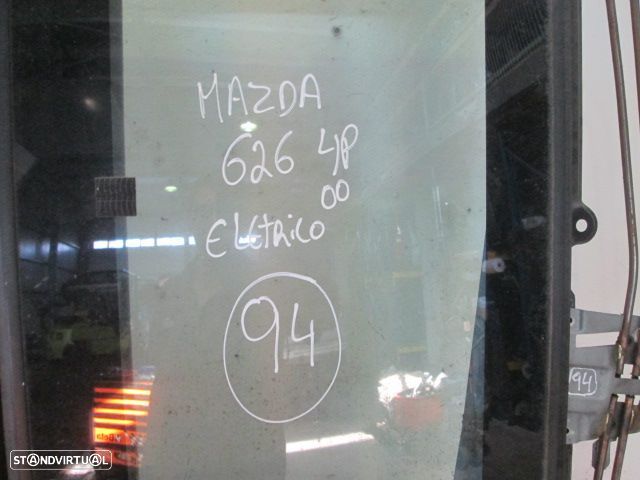 MAZDA
626 4P
00
ElEtrico
94
194
STANDVIRTUAL